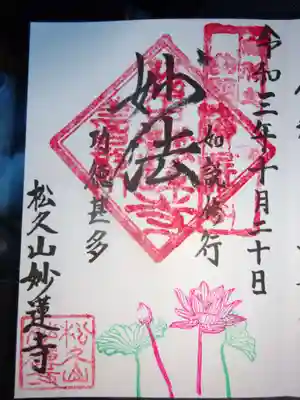 令和三年十月二十日
如説修行
妙法
功徳甚多
松久山妙蓮寺
松久山